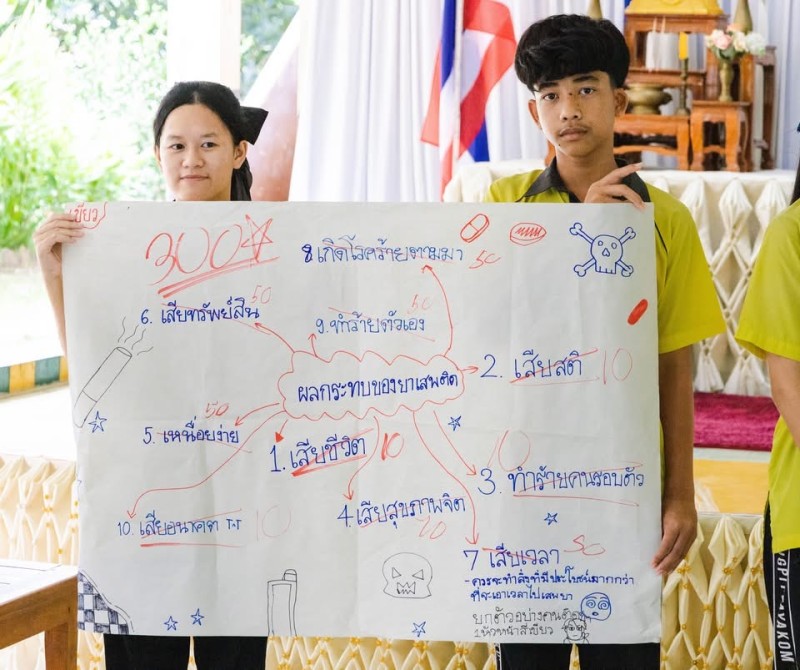 เขียว
300
8 เกิดโรคร้ายตามมา 50
6. เสียทรัพย์สิน 50
9. ทำร้ายตัวเอง 50
2. เสียสติ 10
ผลกระทบของยาเสพติด
5. เหนื่อยง่าย 50
1. เสียชีวิต 10
3. ทำร้ายคนรอบตัว 10
4. เสียสุขภาพจิต 10
10. เสียอนาคต T-T 10
7 เสียเวลา 50
- ควรจะทำสิ่งที่มีประโยชน์มากกว่า
ที่จะเอาเวลาไปเสพยา
ยกตัวอย่างคน
หัวหน้าสีเขียว